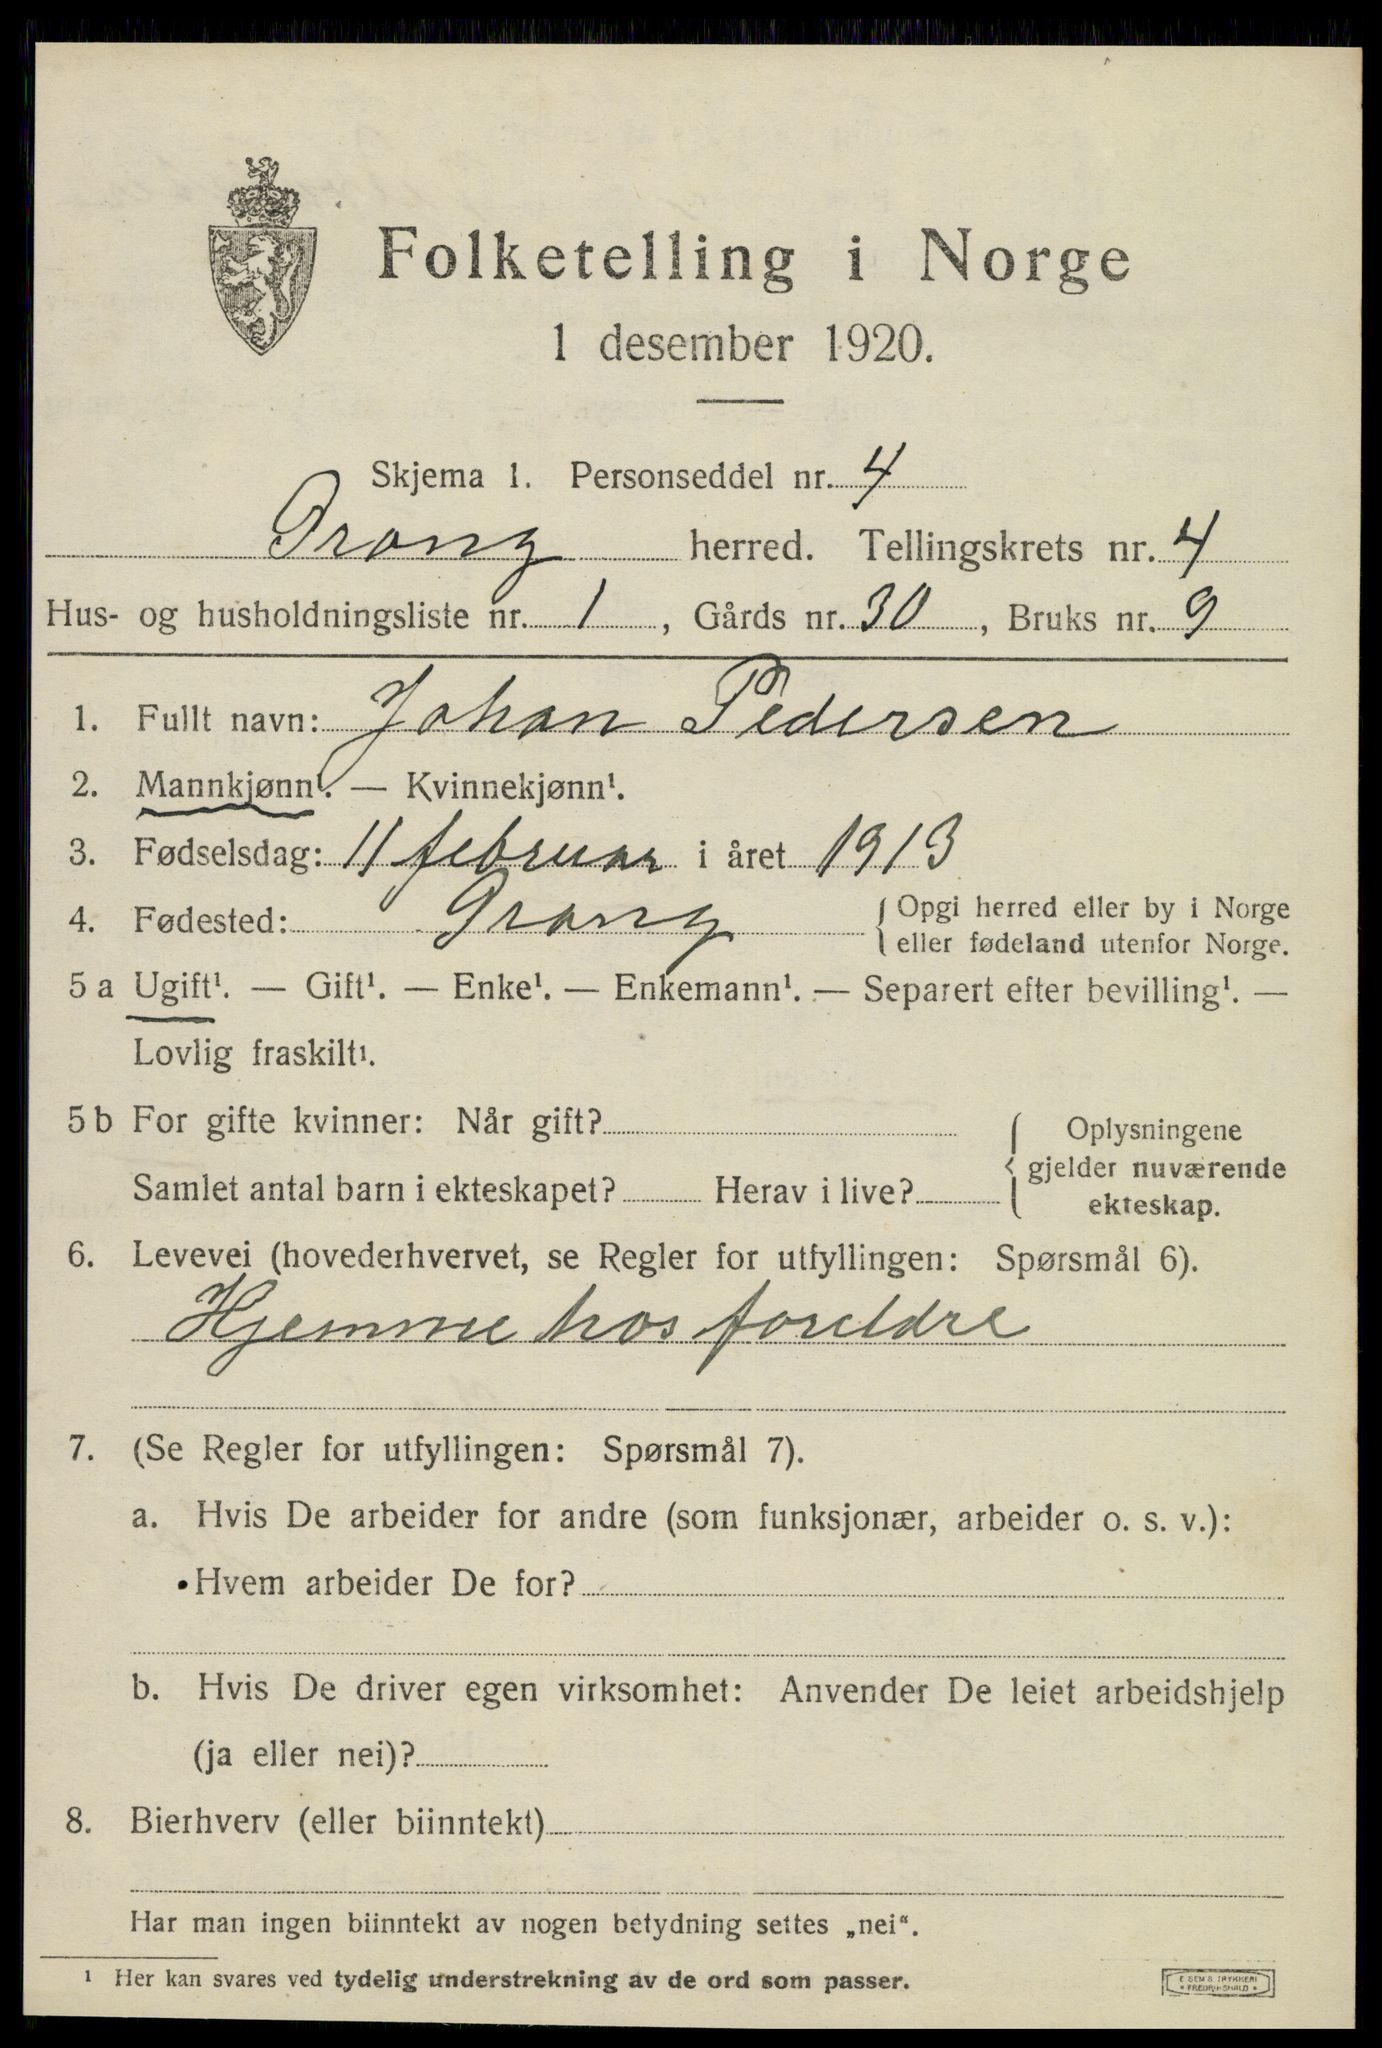 Folketelling i Norge
1 desember 1920.
Skjema 1. Personseddel nr. 4
Grong herred. Tellingskrets nr. 4
Hus- og husholdningsliste nr. 1, Gårds nr. 30, Bruks nr. 9
1. Fullt navn: Johan Pedersen
2. Mannkjønn¹. — Kvinnekjønn¹.
3. Fødselsdag: 11 februar i året 1913
4. Fødested: Grong {Opgi herred eller by i Norge
eller fødeland utenfor Norge.
5 a Ugift¹. — Gift¹. — Enke¹. — Enkemann¹. — Separert efter bevilling¹. —
Lovlig fraskilt¹.
5 b For gifte kvinner: Når gift?
Samlet antal barn i ekteskapet? Herav i live?
{ Oplysningene
gjelder nuværende
ekteskap.
6. Levevei (hovederhvervet, se Regler for utfyllingen: Spørsmål 6).
Hjemme hos foreldre
7. (Se Regler for utfyllingen: Spørsmål 7).
a. Hvis De arbeider for andre (som funksjonær, arbeider o. s. v.):
Hvem arbeider De for?
b. Hvis De driver egen virksomhet: Anvender De leiet arbeidshjelp
(ja eller nei)?
8. Bierhverv (eller biinntekt)
Har man ingen biinntekt av nogen betydning settes „nei“.
¹ Her kan svares ved tydelig understrekning av de ord som passer.
E SEM'S TRYKKERI
FREDRIKSHALD